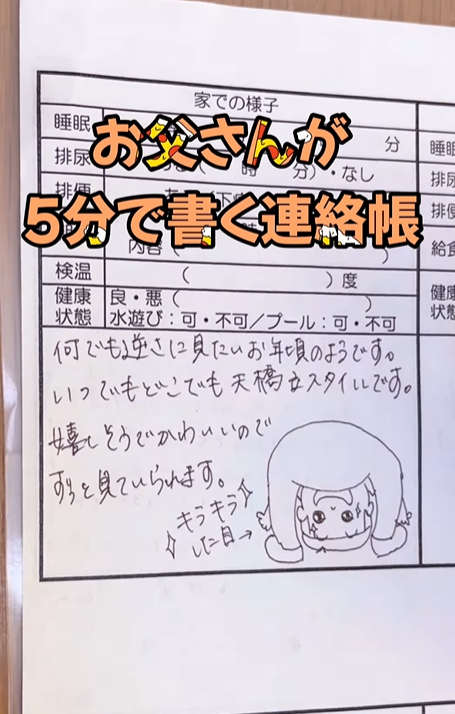 家での様子
睡眠
分
睡眠
お父さんが
排尿
時 分）・なし
排尿
排便
排便
5分で書く連絡帳
内容（ ）
給食
検温 （ ）度
健康状態 良・悪（ ）
水遊び：可・不可／プール：可・不可
健康状態
何でも逆さに見たいお年頃のようです。
いつでもどこでも天橋立スタイルです。
嬉しそうでかわいいので
ずっと見ていられます。
キラキラ
した目→